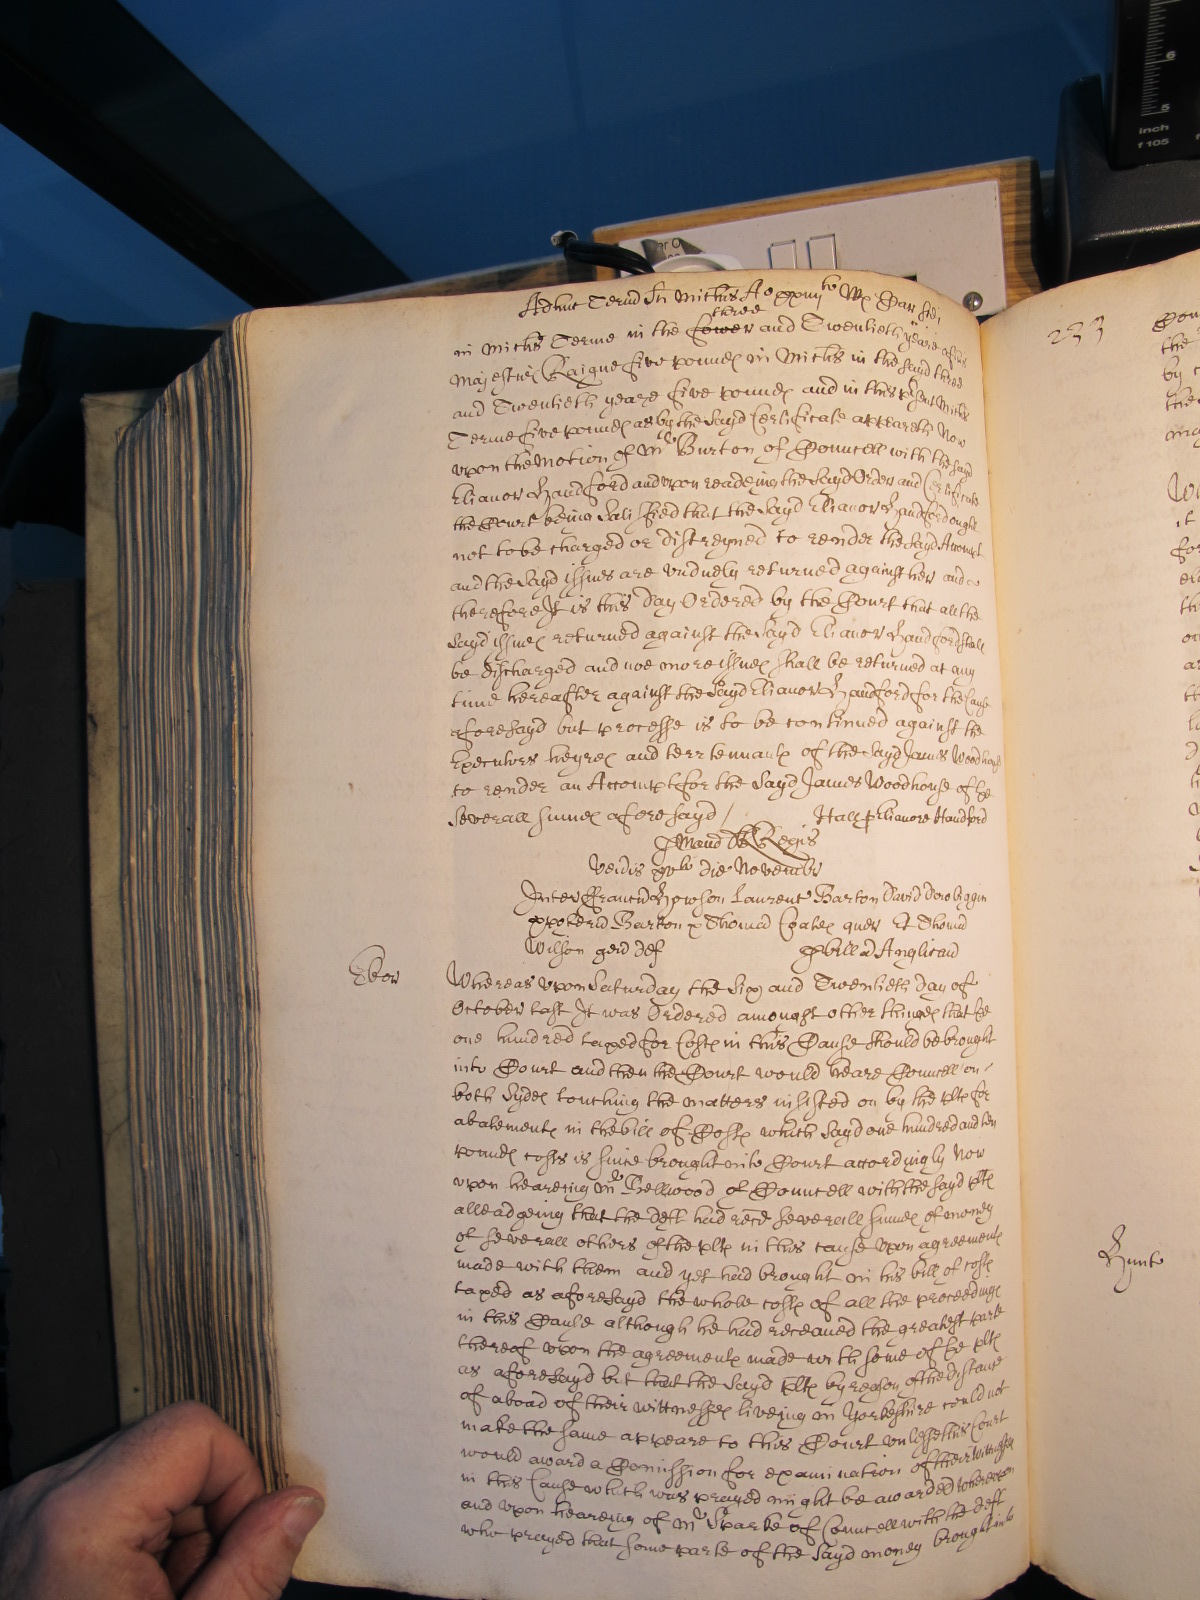 Adhuc Termo Sci Michis Ao xxiijto Rx Car Scdi
in Michs Terme in the fower three and Twentieth yeare of his
Majesties Raigne five pounds in Michs in the said three
and Twentieth yeare five pounds and in this psent Michs
Terme five pounds as by the Sayd Certificate appeareth Now
upon the Motion of Mr Burton of Councell with the sayd
Elianor Handford and upon readeing the Sayd Order and Certificate
the Court being Satisfied that the Sayd Elianor Handford ought
not to be charged or distreyned to render the Sayd Accompt
and the Sayd issues are unduely returned against her and
therefore It is this day Ordered by the Court that all the
Sayd issues returned against the Sayd Elianor Handford shall
be discharged and noe more issues shall be returned at any
time hereafter against the Sayd Elianor Handford for the Cause
aforesayd but processe is to be continued against the
Executors heyres and terr tennants of the Sayd James Woodhouse
to render an Accompt for the Sayd James Woodhouse of the
severall summes aforesayd / Hall p Elianore Handford
Reg
Veneris die Novembr
Inter Francu Howson Laurent Barton David Dowbiggin
Barton & Thomā Coates quer et Thomā
Wilson def p billā Anglicanā
Ebor
Whereas upon Saturday the Six and Twentieth day of
October last It was Ordered amongst other things that the
one hundred taxed for Costs in this Cause should be brought
into Court and then the Court would heare Councell on
both Sydes touching the matters insisted on by the plts for
abatements in the bill of Costs which Sayd one hundred and ten
pounds costs is since brought into Court accordingly Now
upon heareing Mr Bellwood of Councell with the Sayd plts
alleadgeing that the deft had recd severall summes of money
of severall others of the plts in this cause upon agreements
made with them and yet had brought in his bill of costs
taxed as aforesayd the whole costs of all the proceedings
in this Cause although he had receaved the greatest parte
thereof upon the agreements made with some of the plts
as aforesayd but that the Sayd plts by reason of the distance
of aboad of their wittnesses liveing in Yorkeshire could not
make the same appeare to this Court unlesse this Court
would award a Comission for examination of their Wittnesses
in this Cause which was prayed might be awarded whereupon
and upon heareing of Mr Sparke of Councell with the deft
who prayed that some parte of the Sayd money brought into
233
the
by
it
for
inch
f 105
6
5